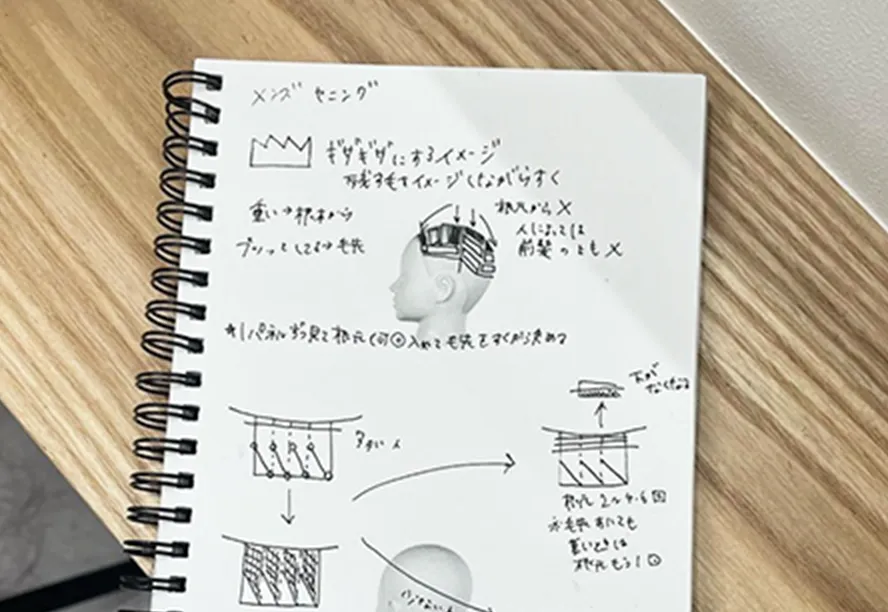 メンズ セニング
ギザギザにするイメージ
残す毛をイメージしながらすく
重い→根本から
根元から ×
人によっては
前髪のとも ×
→毛先
*1パネルずつ見て根元
入れて毛先をすくか決める
下が
なくなる
多い人
根元 2〜4.6回
※毛先すいても
重いときは
根元もう1回
少ない人